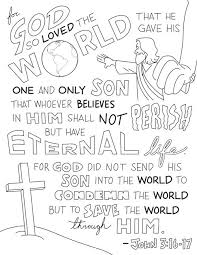 for GOD THAT HE
so LOVED THE GAVE HIS
WORLD
ONE AND ONLY SON
THAT WHOEVER BELIEVES
IN HIM SHALL NOT PERISH
BUT HAVE
ETERNAL life.
FOR GOD DID NOT SEND HIS
SON INTO THE WORLD TO
CONDEMN THE WORLD
BUT TO SAVE THE WORLD
through HIM.
- JOHN 3:16-17